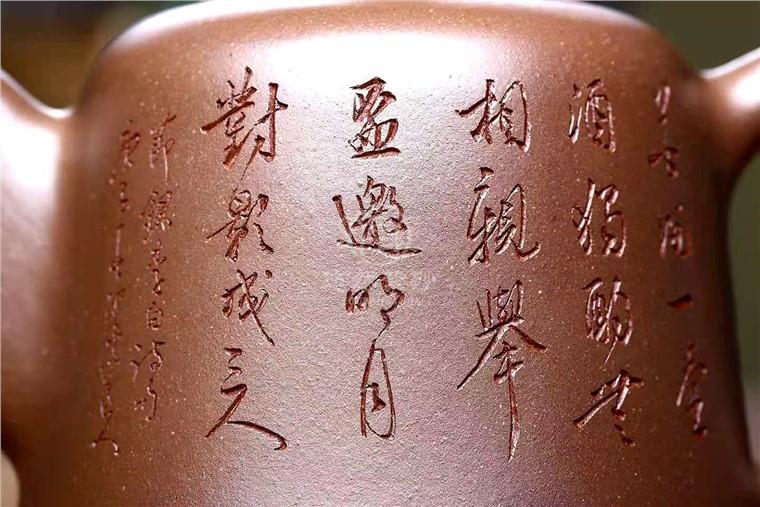 花間一壺
酒獨酌無
相親舉
盃邀明月
對影成三人
節錄李白詩句
庚子年